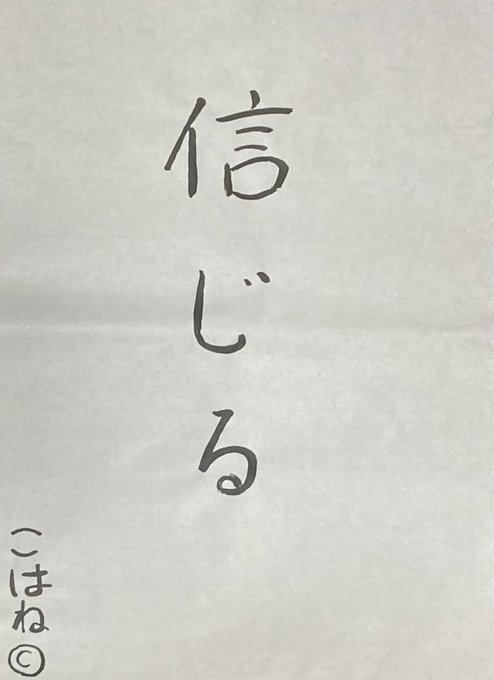 信じる
こはね©